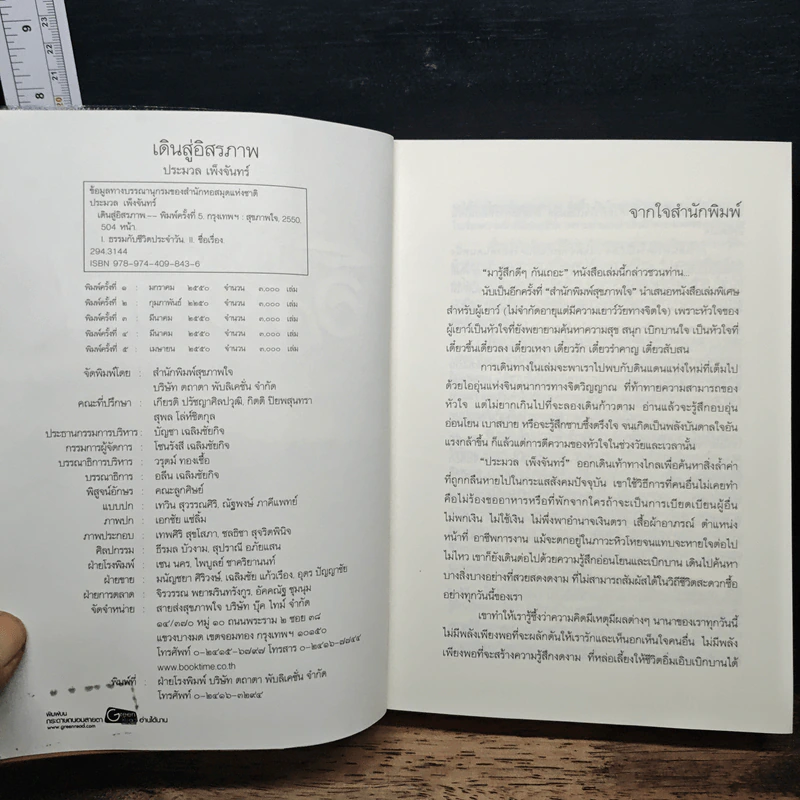 เดินสู่อิสรภาพ
ประมวล เพ็งจันทร์
ข้อมูลทางบรรณานุกรมของสำนักหอสมุดแห่งชาติ
ประมวล เพ็งจันทร์
เดินสู่อิสรภาพ -- พิมพ์ครั้งที่ 5. กรุงเทพฯ : สุขภาพใจ, 2550.
504 หน้า.
I. ธรรมกับชีวิตประจำวัน. II. ชื่อเรื่อง
294.3144
ISBN 978-974-409-843-6
พิมพ์ครั้งที่ ๑ : มกราคม ๒๕๕๐ จำนวน ๓,๐๐๐ เล่ม
พิมพ์ครั้งที่ ๒ : กุมภาพันธ์ ๒๕๕๐ จำนวน ๓,๐๐๐ เล่ม
พิมพ์ครั้งที่ ๓ : มีนาคม ๒๕๕๐ จำนวน ๓,๐๐๐ เล่ม
พิมพ์ครั้งที่ ๔ : มีนาคม ๒๕๕๐ จำนวน ๓,๐๐๐ เล่ม
พิมพ์ครั้งที่ ๕ : เมษายน ๒๕๕๐ จำนวน ๓,๐๐๐ เล่ม
จัดพิมพ์โดย : สำนักพิมพ์สุขภาพใจ
บริษัท ตถาตา พับลิเคชั่น จำกัด
คณะที่ปรึกษา : เกียรติ ปรัชญาศิลปวุฒิ, กิตติ ปิยพสุนทรา
สุพล โล่ห์ชิตกุล
ประธานกรรมการบริหาร : บัญชา เฉลิมชัยกิจ
กรรมการผู้จัดการ : โชนรังสี เฉลิมชัยกิจ
บรรณาธิการบริหาร : วรุตม์ ทองเชื้อ
บรรณาธิการ : อลีน เฉลิมชัยกิจ
พิสูจน์อักษร : คณะลูกศิษย์
แบบปก : เทวิน สุวรรณศิริ, ณัฐพงษ์ ภาคีแพทย์
ภาพปก : เอกชัย แซ่ลิ้ม
ภาพประกอบ : เทพศิริ สุขโสภา, ชลธิชา สุจริตพินิจ
ศิลปกรรม : ธีรมล บัวงาม, สุปราณี อภัยแสน
ฝ่ายโรงพิมพ์ : เชน นคร, ไพบูลย์ ชาครียานนท์
ฝ่ายขาย : มนัญชยา ศิริวงษ์, เฉลิมชัย แก้วเรือง, อุดร ปัญญาชัย
ฝ่ายการตลาด : จิรวรรณ พยาชรินทรังกูร, อัคคณัฐ ชุมนุม
จัดจำหน่าย : สายส่งสุขภาพใจ บริษัท บุ๊ค ไทม์ จำกัด
๑๔/๓๗๐ หมู่ ๑๐ ถนนพระราม ๒ ซอย ๓๘
แขวงบางมด เขตจอมทอง กรุงเทพฯ ๑๐๑๕๐
โทรศัพท์ ๐-๒๔๑๕-๖๗๙๗ โทรสาร ๐-๒๔๑๖-๗๗๔๔
www.booktime.co.th
พิมพ์ที่ : ฝ่ายโรงพิมพ์ บริษัท ตถาตา พับลิเคชั่น จำกัด
โทรศัพท์ ๐-๒๔๑๖-๓๒๙๔
พิมพ์บน
กระดาษถนอมสายตา Green Read อ่านได้นาน
www.greenread.com
จากใจสำนักพิมพ์
"มารู้สึกดีๆ กันเถอะ" หนังสือเล่มนี้กล่าวชวนท่าน...
นับเป็นอีกครั้งที่ "สำนักพิมพ์สุขภาพใจ" นำเสนอหนังสือเล่มพิเศษ
สำหรับผู้เยาว์ (ไม่จำกัดอายุแต่มีความเยาว์วัยทางจิตใจ) เพราะหัวใจของ
ผู้เยาว์เป็นหัวใจที่ยังพยายามค้นหาความสุข สนุก เบิกบานใจ เป็นหัวใจที่
เดี๋ยวขึ้นเดี๋ยวลง เดี๋ยวเหงา เดี๋ยวรัก เดี๋ยวรำคาญ เดี๋ยวสับสน
การเดินทางในเล่มจะพาเราไปพบกับดินแดนแห่งใหม่ที่เต็มไป
ด้วยไออุ่นแห่งจินตนาการทางจิตวิญญาณ ที่ท้าทายความสามารถของ
หัวใจ แต่ไม่ยากเกินไปที่จะลองเดินก้าวตาม อ่านแล้วจะรู้สึกอบอุ่น
อ่อนโยน เบาสบาย หรือจะรู้สึกซาบซึ้งตรึงใจ จนเกิดเป็นพลังบันดาลใจอัน
แรงกล้าขึ้น ก็แล้วแต่การตีความของหัวใจในช่วงวัยและเวลานั้น
"ประมวล เพ็งจันทร์" ออกเดินเท้าทางไกลเพื่อค้นหาสิ่งล้ำค่า
ที่ถูกกลืนหายไปในกระแสสังคมปัจจุบัน เขาใช้วิธีการที่คนอื่นไม่เคยทำ
คือไม่ร้องขออาหารหรือที่พักจากใครถ้าจะเป็นการเบียดเบียนผู้อื่น
ไม่พกเงิน ไม่ใช้เงิน ไม่พึ่งพาอำนาจเงินตรา เสื้อผ้าอาภรณ์ ตำแหน่ง
หน้าที่ อาชีพการงาน แม้จะตกอยู่ในภาวะหิวโหยจนแทบจะหายใจต่อไป
ไม่ไหว เขาก็ยังเดินต่อไปด้วยความรู้สึกอ่อนโยนและเบิกบาน เดินไปค้นหา
บางสิ่งบางอย่างที่สวยสดงดงาม ที่ไม่สามารถสัมผัสได้ในวิถีชีวิตสะดวกซื้อ
อย่างทุกวันนี้ของเรา
เขาทำให้เรารู้ซึ้งว่าความคิดมีเหตุมีผลต่างๆ นานาของเราทุกวันนี้
ไม่มีพลังเพียงพอที่จะผลักดันให้เรารักและเห็นอกเห็นใจคนอื่น ไม่มีพลัง
เพียงพอที่จะสร้างความรู้สึกงดงาม ที่หล่อเลี้ยงให้ชีวิตอิ่มเอิบเบิกบานได้